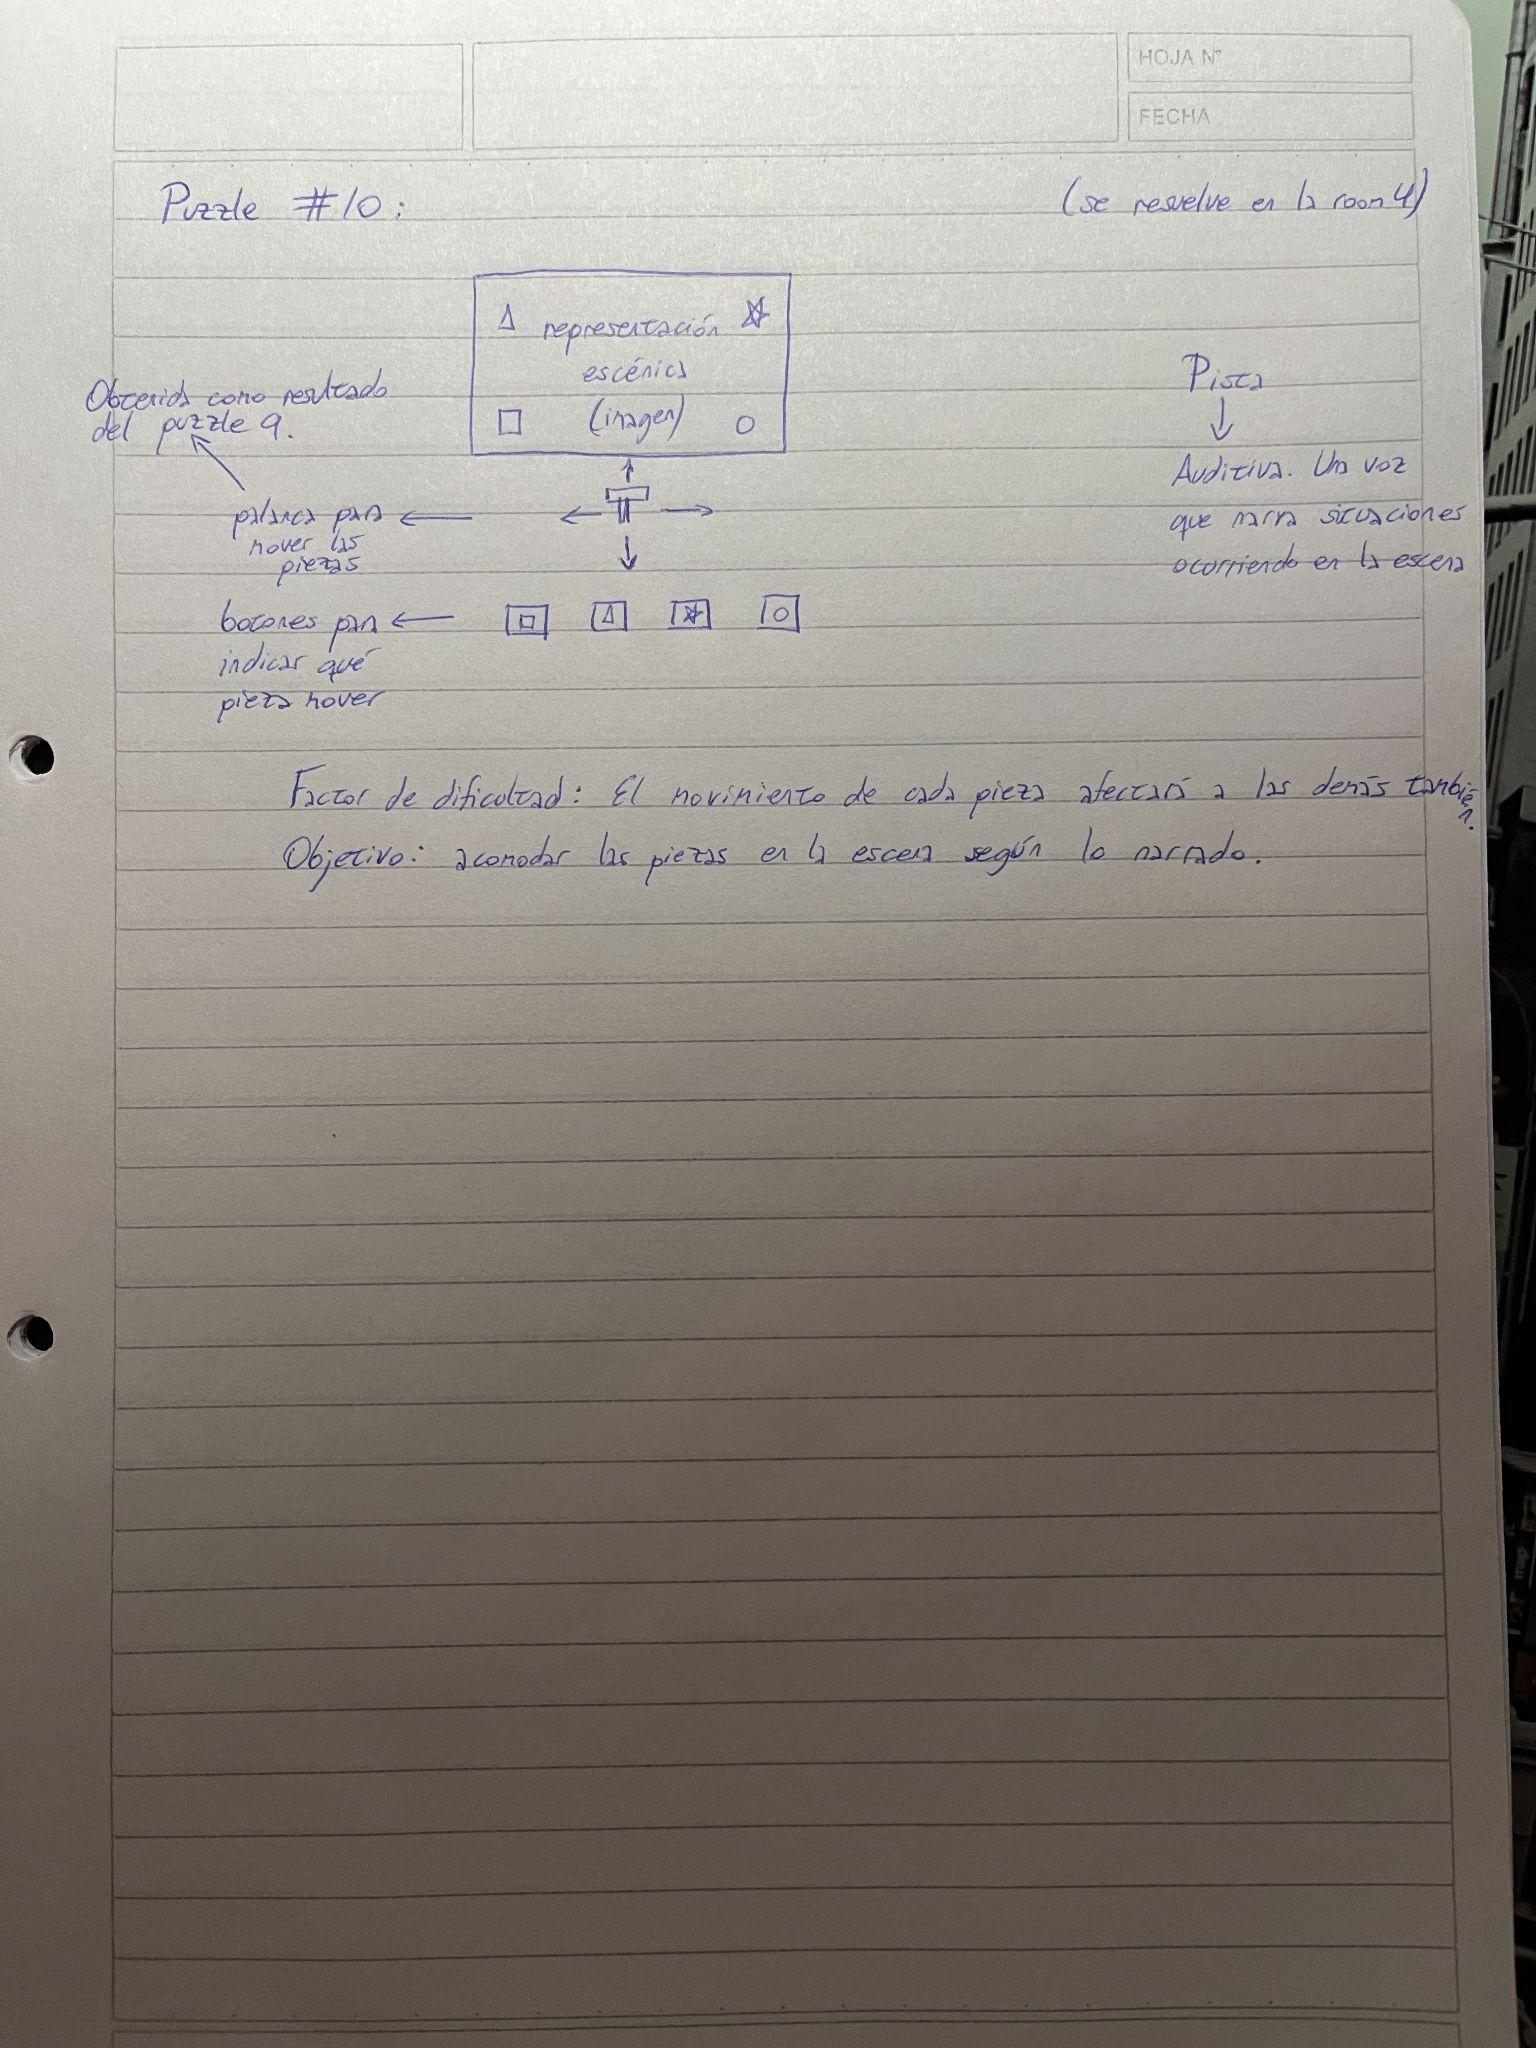 HOJA Nº
FECHA
Puzzle #10:
(se resuelve en la room 4)
representación
escénica
(imagen)
Obtenida como resultado
del puzzle 9.
palanca para
mover las
piezas
botones para
indicar qué
pieza mover
Pista
Auditiva. Una voz
que narra situaciones
ocurriendo en la escena
Factor de dificultad: El movimiento de cada pieza afectará a las demás también.
Objetivo: acomodar las piezas en la escena según lo narrado.